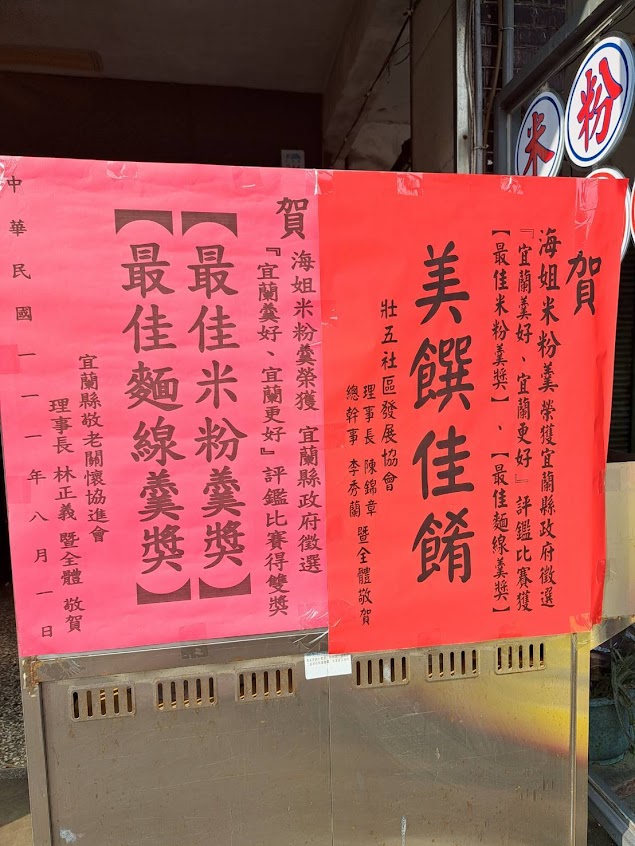 賀
海姐米粉羹榮獲宜蘭縣政府徵選
『宜蘭羹好、宜蘭更好』評鑑比賽獲
【最佳米粉羹獎】、【最佳麵線羹獎】
美饌佳餚
壯五社區發展協會
理事長 陳錦章
總幹事 李秀蘭
暨全體敬賀
賀
海姐米粉羹榮獲 宜蘭縣政府徵選
『宜蘭羹好、宜蘭更好』評鑑比賽得雙獎
【最佳米粉羹獎】
【最佳麵線羹獎】
宜蘭縣敬老關懷協進會
理事長 林正義 暨全體 敬賀
中華民國一一一年八月一日
米粉